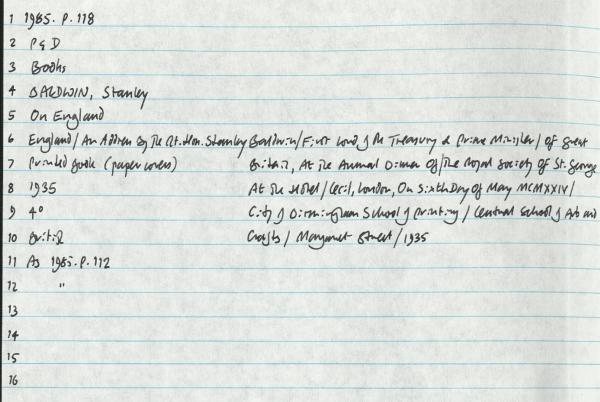 1 1985.P.118
2 P & D
3 Books
4 BALDWIN, Stanley
5 On England
6 England / An Address By The Rt. Hon. Stanley Baldwin / First Lord of the Treasury & Prime Minister / Of Great
7 Printed book (paper covers) Britain, At The Annual Dinner Of / The Royal Society Of St. George
8 1935 At The Hotel / Cecil, London, On Sixth Day Of May MCMXXIV /
9 4° City of Birmingham School of Printing / Central School of Arts and
10 British Crafts / Margaret Street / 1935
11 As 1985.P.112
12 "
13
14
15
16